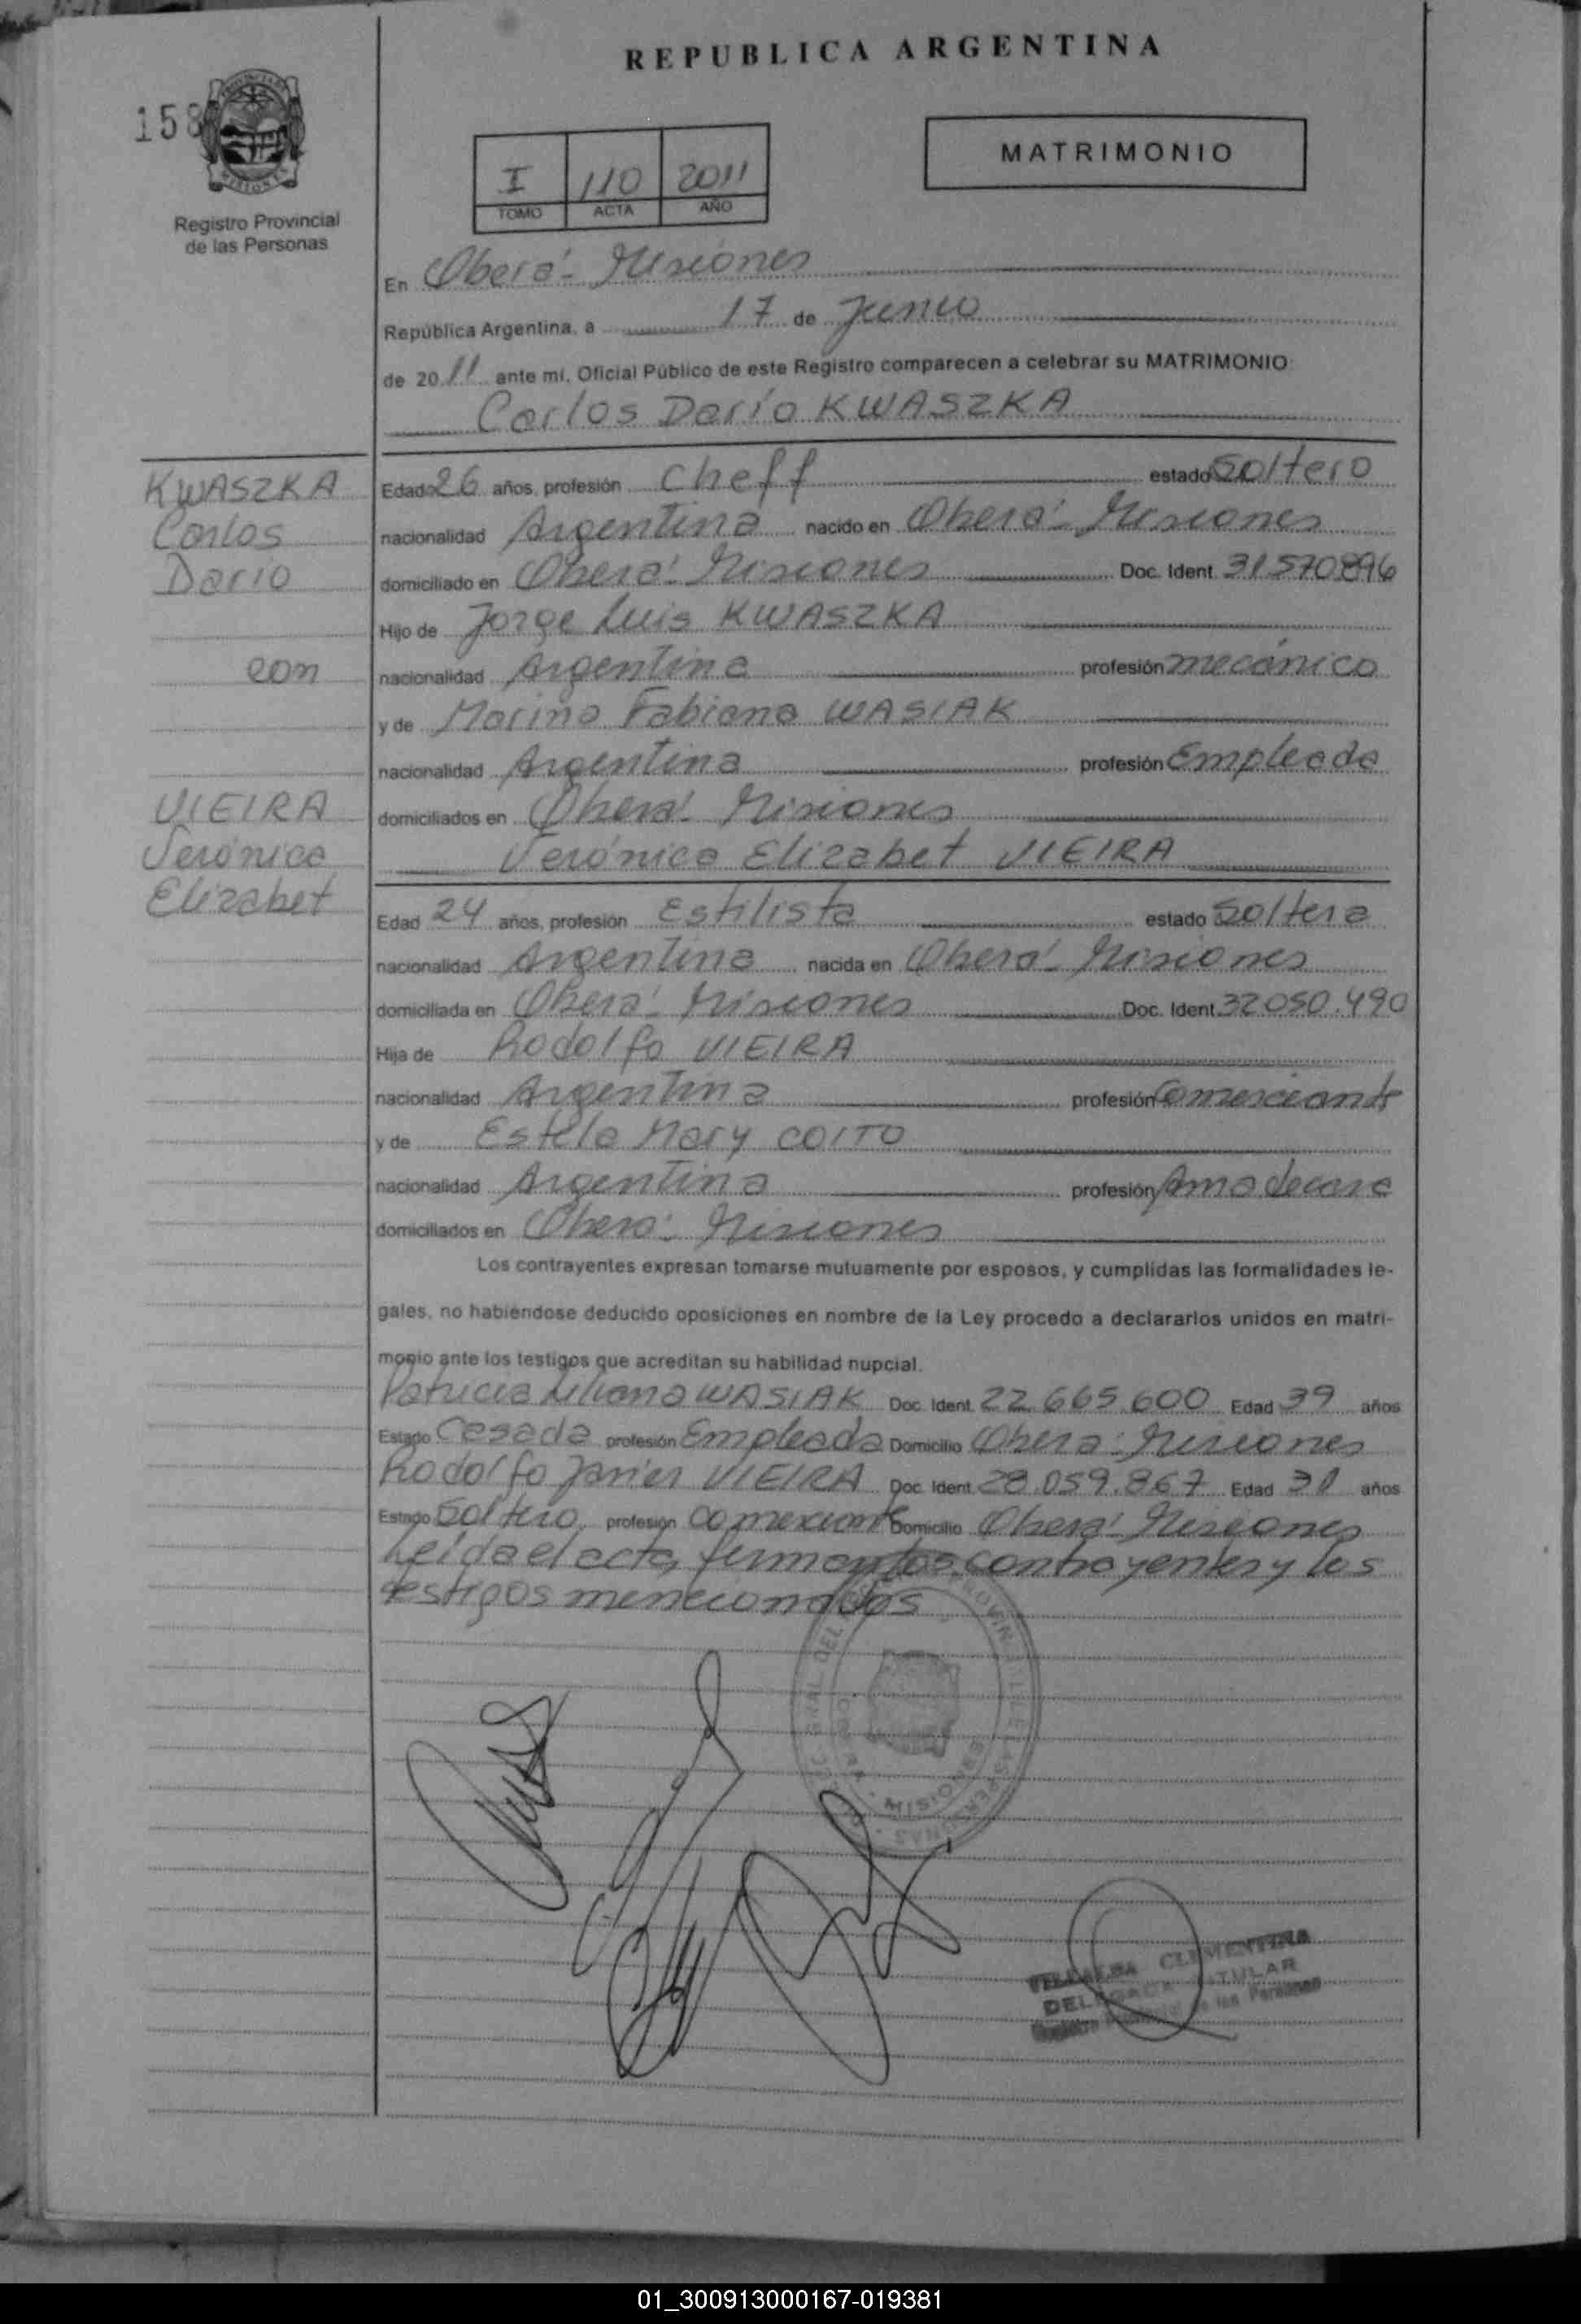 REPUBLICA ARGENTINA
158
PROVINCIA DE MISIONES
Registro Provincial
de las Personas
MATRIMONIO
I 110 2011
TOMO ACTA AÑO
En Oberá - Misiones
República Argentina, a 17 de Junio
de 2011 ante mí, Oficial Público de este Registro comparecen a celebrar su MATRIMONIO:
Carlos Darío KWASZKA
KWASZKA
Carlos
Darío
con
VIEIRA
Verónica
Elizabet
Edad 26 años, profesión cheff estado Soltero
nacionalidad Argentina nacido en Oberá - Misiones
domiciliado en Oberá - Misiones Doc. Ident. 31570896
Hijo de Jorge Luis KWASZKA
nacionalidad Argentina profesión mecánico
y de Marina Fabiana WASIAK
nacionalidad Argentina profesión Empleada
domiciliados en Oberá - Misiones
Verónica Elizabet VIEIRA
Edad 24 años, profesión Estilista estado Soltera
nacionalidad Argentina nacida en Oberá - Misiones
domiciliada en Oberá - Misiones Doc. Ident. 32.050.490
Hija de Rodolfo VIEIRA
nacionalidad Argentina profesión Comerciante
y de Estela Mary COITO
nacionalidad Argentina profesión Ama de casa
domiciliados en Oberá - Misiones
Los contrayentes expresan tomarse mutuamente por esposos, y cumplidas las formalidades le-
gales, no habiéndose deducido oposiciones en nombre de la Ley procedo a declararlos unidos en matri-
monio ante los testigos que acreditan su habilidad nupcial.
Patricia Liliana WASIAK Doc. Ident. 22.665.600 Edad 39 años
Estado Casada profesión Empleada Domicilio Oberá - Misiones
Rodolfo Javier VIEIRA Doc. Ident. 28.059.867 Edad 31 años
Estado Soltero profesión comerciante Domicilio Oberá - Misiones
Leída el acta, firman los contrayentes y los
testigos mencionados
MISIONES
CLEMENTINA
DELEGADA TITULAR
Registro Provincial de las Personas
01_300913000167-019381